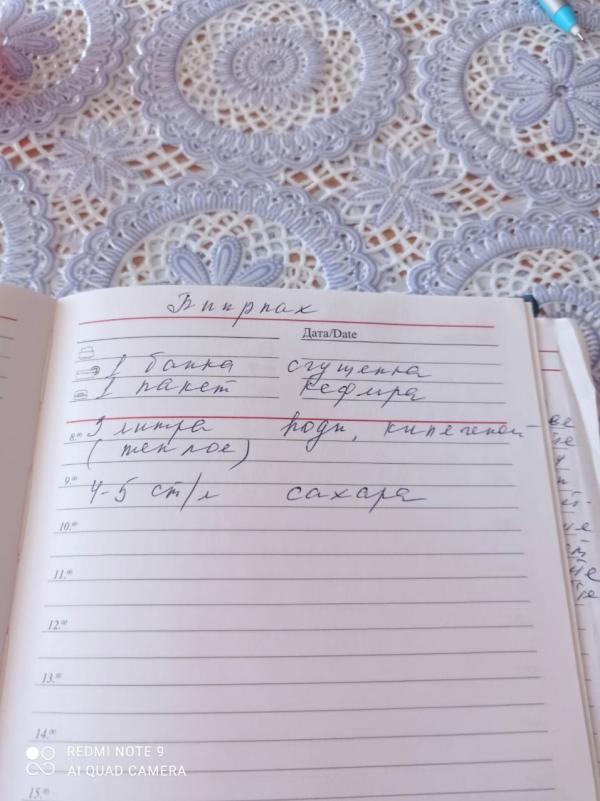 Биирпах
Дата/Date
1 банка сгущенка
1 пакет кефира
8.00 3 литра воды, кипеченой
(теплое)
9.00 4-5 ст/л сахара
10.00
11.00
12.00
13.00
14.00
15.00
REDMI NOTE 9
AI QUAD CAMERA